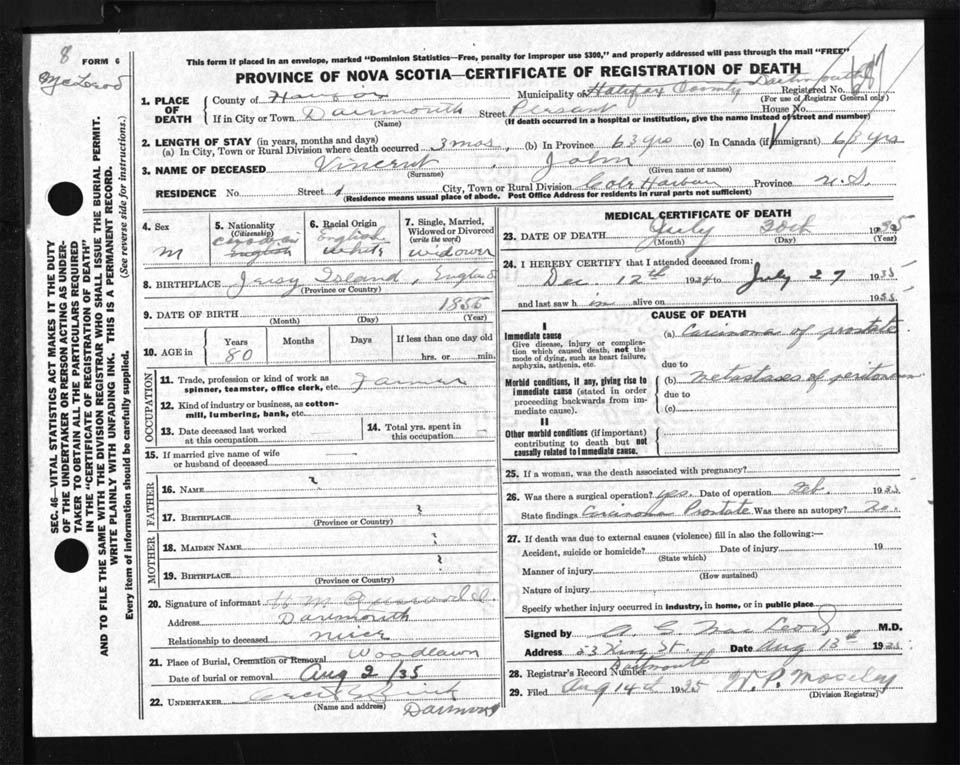 8
McLeod
FORM 6
This form if placed in an envelope, marked "Dominion Statistics—Free, penalty for improper use $300," and properly addressed will pass through the mail "FREE"
PROVINCE OF NOVA SCOTIA—CERTIFICATE OF REGISTRATION OF DEATH
SEC. 46—VITAL STATISTICS ACT MAKES IT THE DUTY
OF THE UNDERTAKER OR PERSON ACTING AS UNDER-
TAKER TO OBTAIN ALL THE PARTICULARS REQUIRED
IN THE "CERTIFICATE OF REGISTRATION OF DEATH"
AND TO FILE THE SAME WITH THE DIVISION REGISTRAR WHO SHALL ISSUE THE BURIAL PERMIT.
WRITE PLAINLY WITH UNFADING INK. THIS IS A PERMANENT RECORD.
Every item of information should be carefully supplied. (See reverse side for instructions.)
1. PLACE OF DEATH
County of Halifax Municipality of Halifax County Dartmouth Registered No.
(For use of Registrar General only)
If in City or Town Darmouth Street Pleasant House No.
(Name) (If death occurred in a hospital or institution, give the name instead of street and number)
2. LENGTH OF STAY (in years, months and days)
(a) In City, Town or Rural Division where death occurred 3 mos. (b) In Province 63 yrs (c) In Canada (if immigrant) 63 yrs
3. NAME OF DECEASED Vincent John
(Surname) (Given name or names)
RESIDENCE No. Street City, Town or Rural Division Cole Harbour Province N.S.
(Residence means usual place of abode. Post Office Address for residents in rural parts not sufficient)
4. Sex
M
5. Nationality (Citizenship)
Canadian
English
6. Racial Origin
English
White
7. Single, Married, Widowed or Divorced (write the word)
Widower
8. BIRTHPLACE Jersy Island, England
(Province or Country)
9. DATE OF BIRTH 1855
(Month) (Day) (Year)
10. AGE in Years Months Days If less than one day old
80 hrs. or min.
OCCUPATION
11. Trade, profession or kind of work as spinner, teamster, office clerk, etc. Farmer
12. Kind of industry or business, as cotton-mill, lumbering, bank, etc.
13. Date deceased last worked at this occupation
14. Total yrs. spent in this occupation
15. If married give name of wife or husband of deceased
FATHER
16. NAME ?
17. BIRTHPLACE ?
(Province or Country)
MOTHER
18. MAIDEN NAME ?
19. BIRTHPLACE ?
(Province or Country)
20. Signature of informant H M
Address Darmouth
Relationship to deceased niece
21. Place of Burial, Cremation or Removal Woodlawn
Date of burial or removal Aug 2/35
22. UNDERTAKER
(Name and address) Darmouth
MEDICAL CERTIFICATE OF DEATH
23. DATE OF DEATH July 30th 1935
(Month) (Day) (Year)
24. I HEREBY CERTIFY that I attended deceased from:
Dec 12th 1934 to July 27 1935
and last saw h im alive on 1935
CAUSE OF DEATH
I
Immediate cause
Give disease, injury or complication which caused death, not the mode of dying, such as heart failure, asphyxia, asthenia, etc.
(a) Carcinoma of prostate
due to
Morbid conditions, if any, giving rise to immediate cause (stated in order proceeding backwards from immediate cause).
(b) Metastases of peritoneum
due to
(c)
II
Other morbid conditions (if important) contributing to death but not causally related to immediate cause.
25. If a woman, was the death associated with pregnancy?
26. Was there a surgical operation? yes. Date of operation Feb. 1935
State findings Carcinoma Prostate Was there an autopsy? No.
27. If death was due to external causes (violence) fill in also the following:—
Accident, suicide or homicide? Date of injury 19
(State which)
Manner of injury
(How sustained)
Nature of injury
Specify whether injury occurred in industry, in home, or in public place
Signed by A G MacLeod M.D.
Address 23 King St Date Aug 13th 1935
Darmouth
28. Registrar's Record Number
29. Filed Aug 14th 1935 W. P. Moseley
(Division Registrar)